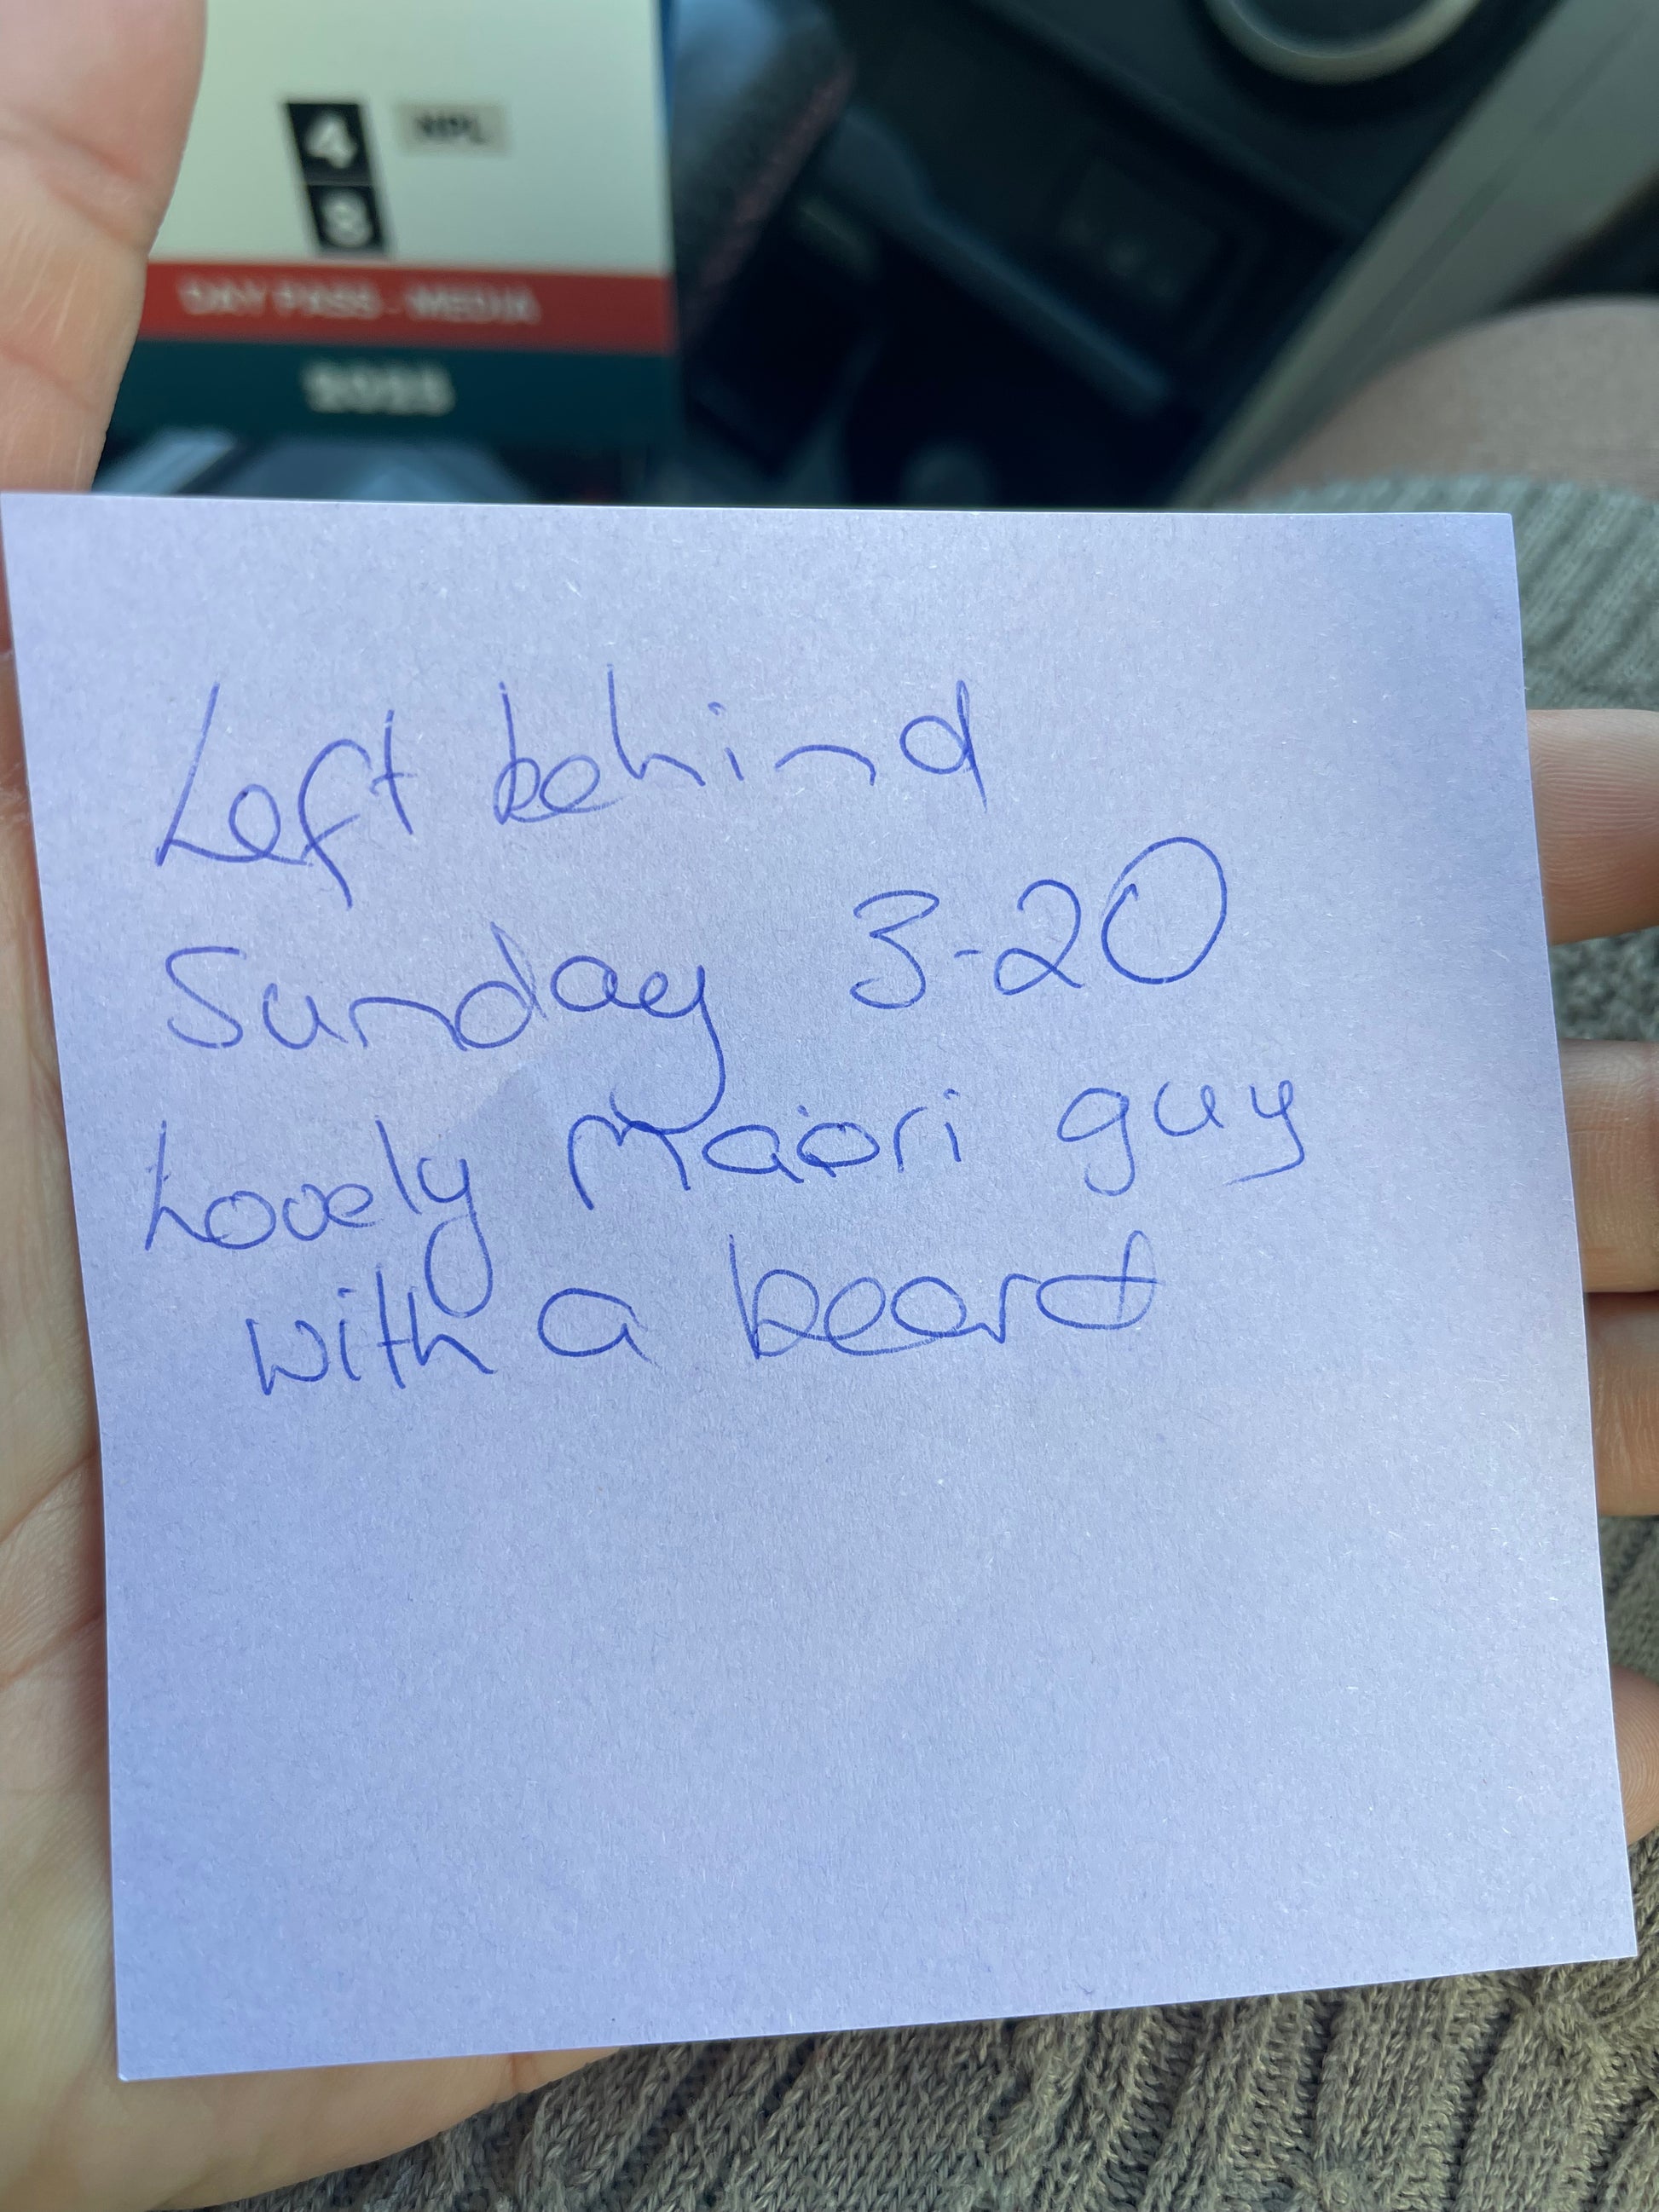 4 NPL
DAY PASS - MEDIA
Left behind
Sunday 3-20
Lovely Maori guy
with a beard